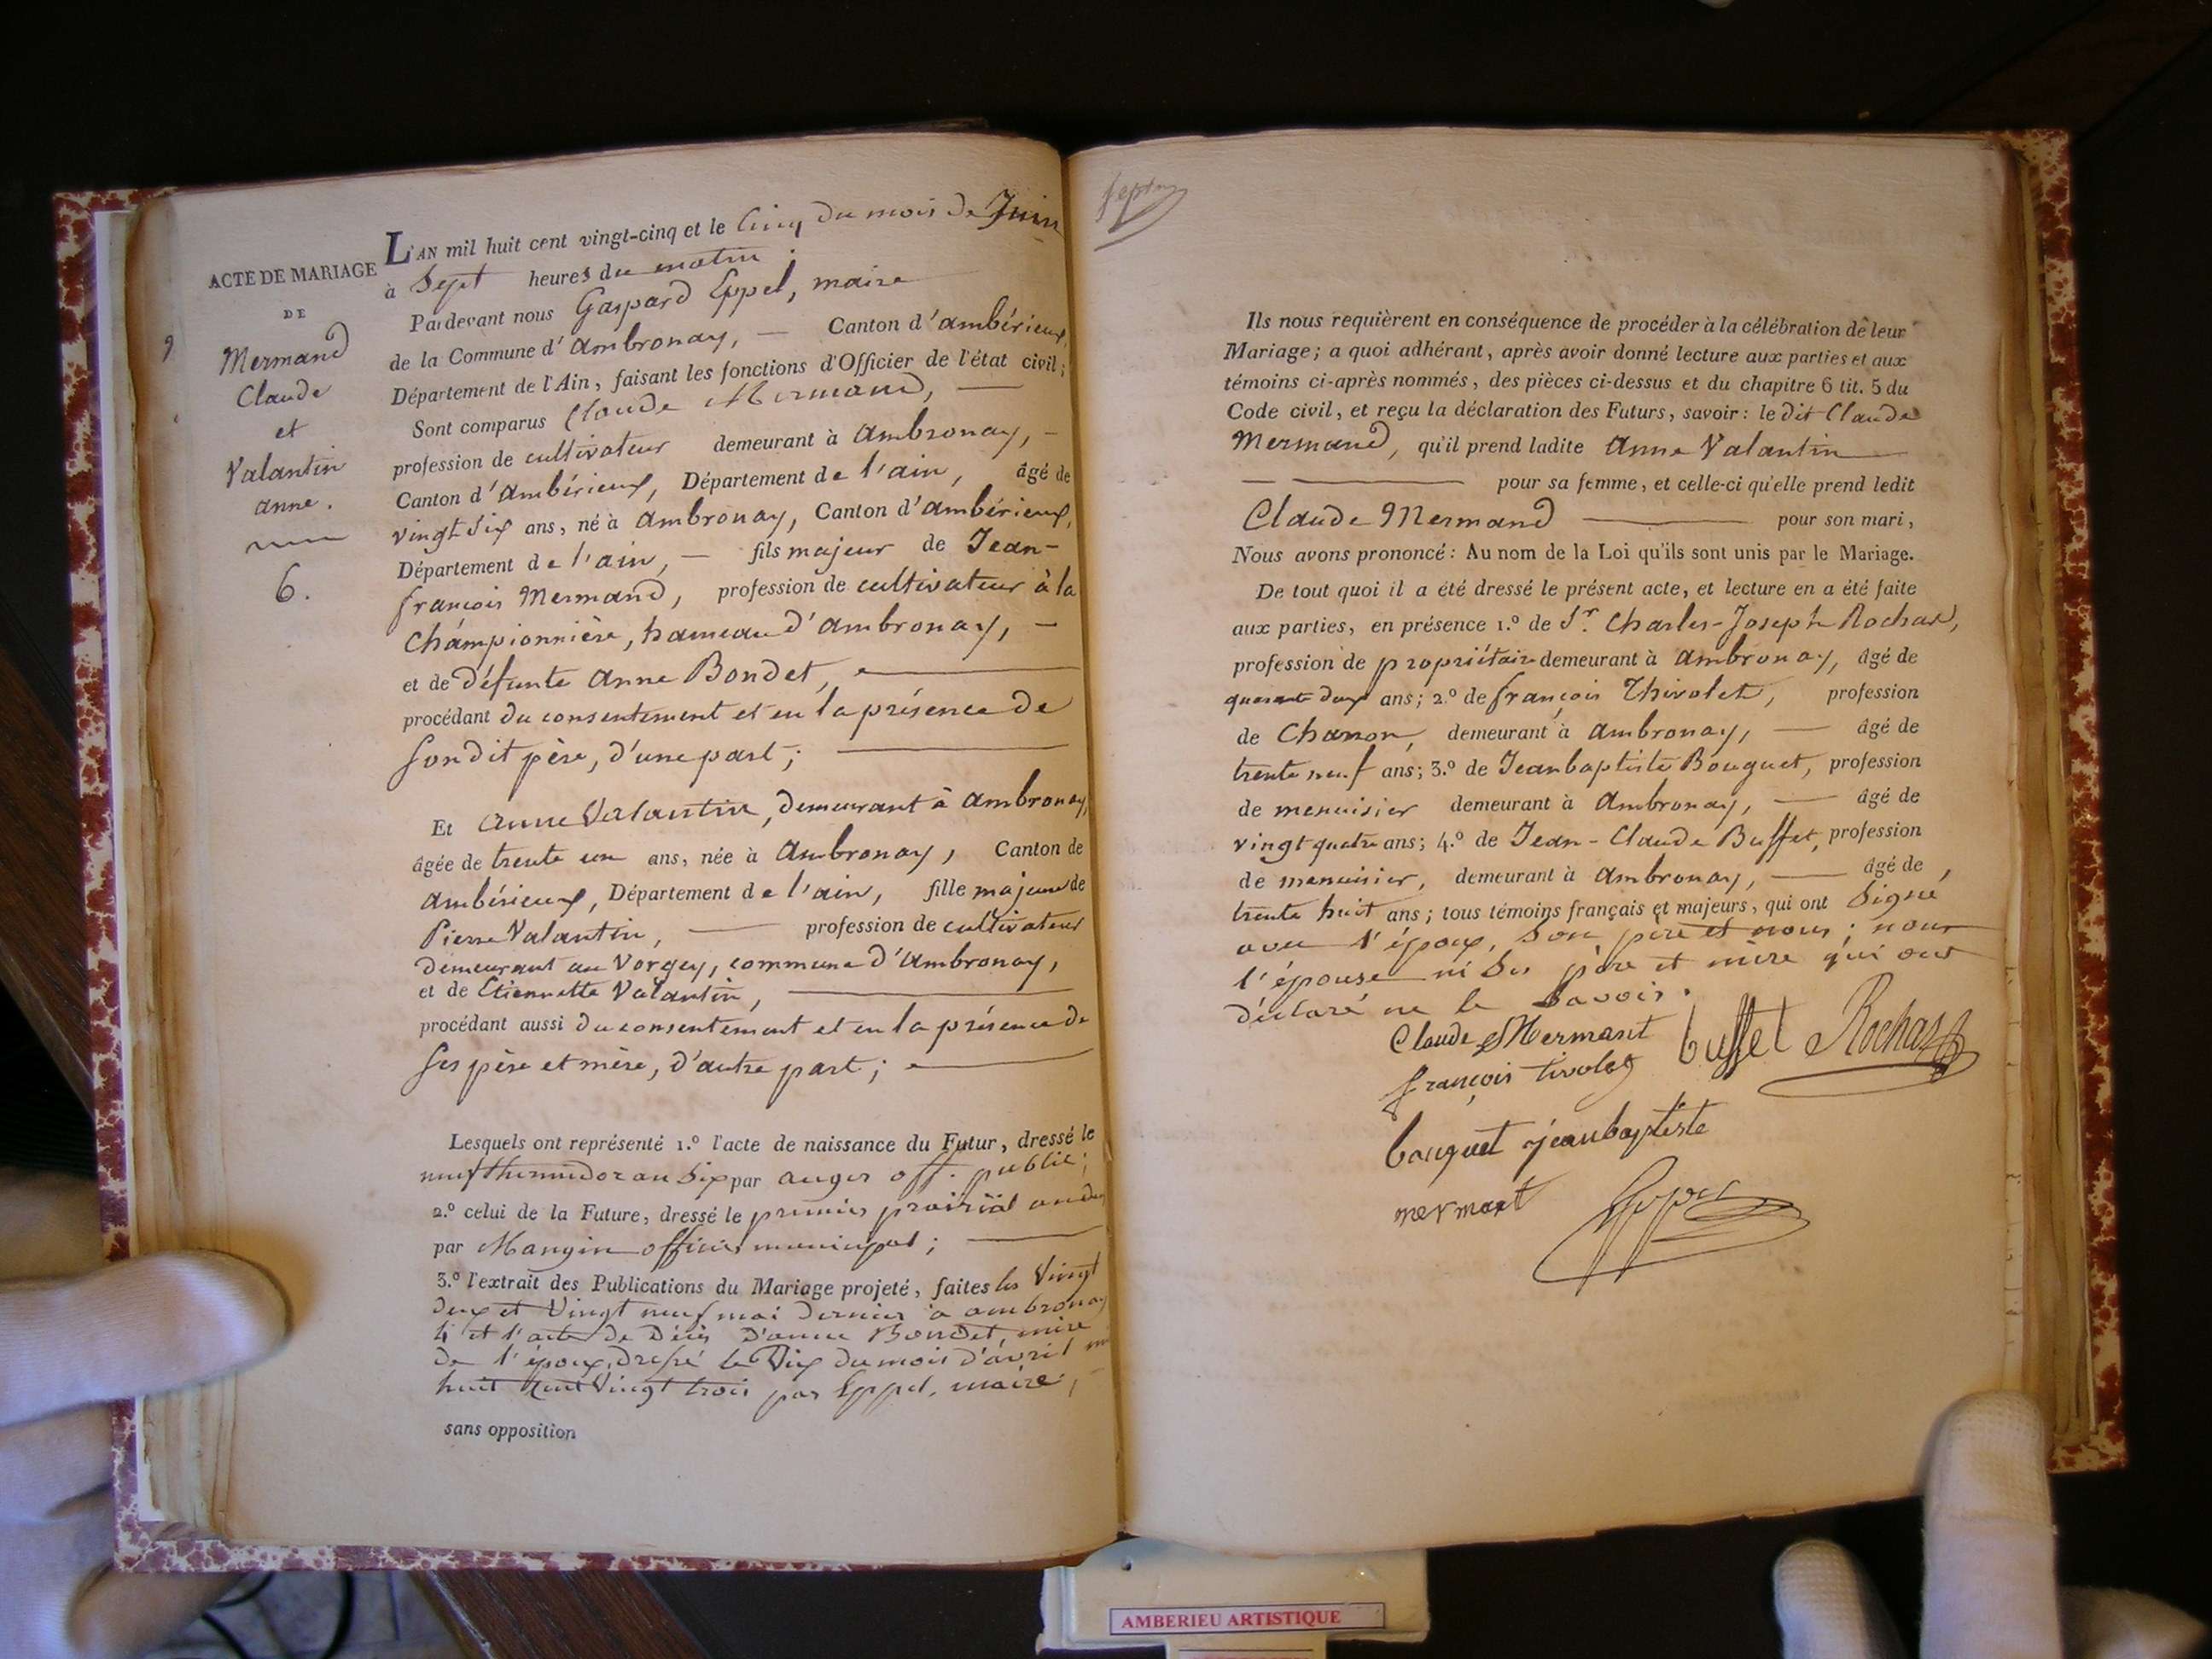 ACTE DE MARIAGE
DE
Mermand
Claude
et
Valantin
anne.
6.
L'AN mil huit cent vingt-cinq et le Cinq du mois de Juin
à Sept heures du matin ;
Pardevant nous Gaspard Eppel, maire
de la Commune d'Ambronay, — Canton d'ambérieux,
Département de l'Ain, faisant les fonctions d'Officier de l'état civil ;
Sont comparus Claude Mermand, —
profession de cultivateur demeurant à Ambronay, —
Canton d'Ambérieux, Département de l'ain, âgé de
vingt Six ans, né à Ambronay, Canton d'ambérieux,
Département de l'ain, — fils majeur de Jean-
françois Mermand, profession de cultivateur à la
Championnière, hameau d'ambronay, —
et de défunte Anne Bondet, —
procédant du consentement et en la présence de
Son dit père, d'une part ; —
Et Anne Valantin, demeurant à Ambronay,
âgée de trente un ans, née à Ambronay, Canton de
Ambérieux, Département de l'ain, fille majeure de
Pierre Valantin, — profession de cultivateur
demeurant au Vorgey, commune d'Ambronay,
et de Etiennette Valantin, —
procédant aussi du consentement et en la présence de
Ses père et mère, d'autre part ; —
Lesquels ont représenté 1.º l'acte de naissance du Futur, dressé le
neuf thermidor an Six par auger off. public ;
2.º celui de la Future, dressé le premier prairial an deux
par Mangin officier municipal ; —
3.º l'extrait des Publications du Mariage projeté, faites les Vingt
deux et Vingt neuf mai dernier à ambronay
4 et l'acte de Décès d'anne Bondet, mère
de l'époux, dressé le Dix du mois d'avril mil
huit cent Vingt trois par Eppel, maire ; —
sans opposition
Ils nous requièrent en conséquence de procéder à la célébration de leur
Mariage ; a quoi adhérant, après avoir donné lecture aux parties et aux
témoins ci-après nommés, des pièces ci-dessus et du chapitre 6 tit. 5 du
Code civil, et reçu la déclaration des Futurs, savoir : le dit Claude
Mermand, qu'il prend ladite Anne Valantin —
— pour sa femme, et celle-ci qu'elle prend ledit
Claude Mermand — pour son mari,
Nous avons prononcé : Au nom de la Loi qu'ils sont unis par le Mariage.
De tout quoi il a été dressé le présent acte, et lecture en a été faite
aux parties, en présence 1.º de Sr. Charles-Joseph Rochas,
profession de propriétaire demeurant à Ambronay, âgé de
quarante deux ans ; 2.º de françois Thivolet, profession
de Charron, demeurant à Ambronay, — âgé de
trente neuf ans ; 3.º de Jeanbaptiste Bouquet, profession
de menuisier demeurant à Ambronay, — âgé de
vingt quatre ans ; 4.º de Jean-Claude Buffet, profession
de menuisier, demeurant à Ambronay, — âgé de
trente huit ans ; tous témoins français et majeurs, qui ont Signé
avec l'époux, Son père et nous ; non
l'épouse ni Ses père et mère qui ont
déclaré ne le Savoir.
Claude Mermant buffet Rochas
françois tivolet
bouquet jeanbaptiste
mermant Eppel
AMBERIEU ARTISTIQUE